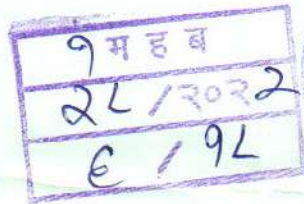 १ म ह ब
२८ / २०२२
६ / १८